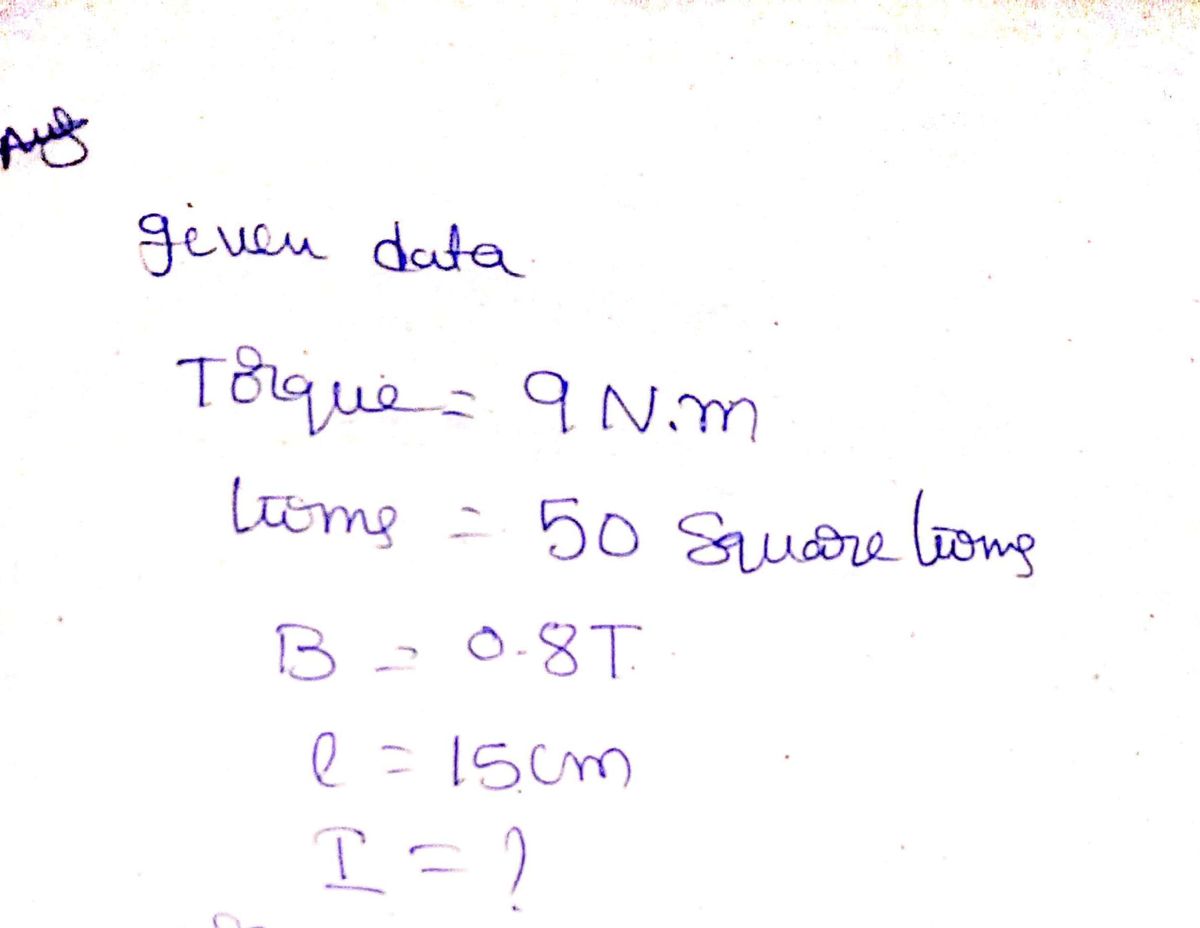 Ans
given data
Torque = 9 N.m
turns = 50 Square turns
B = 0.8T.
l = 15cm
I = ?